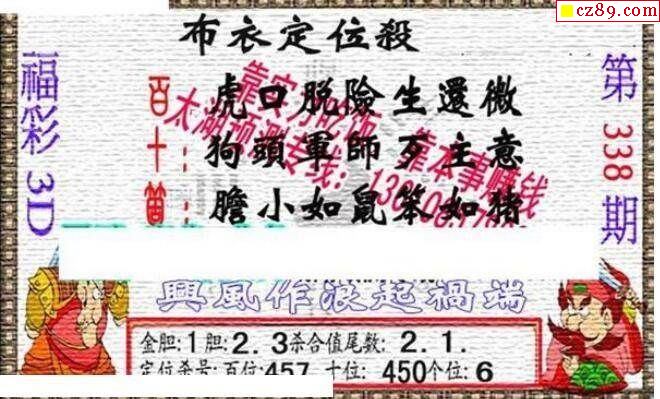 cz89.com
布衣定位殺
福彩3D
第338期
百: 虎口脱險生還微
十: 狗頭軍師歹主意
個: 膽小如鼠笨如豬
興風作浪起禍端
金胆:1胆:2.3杀合值尾数:2.1.
定位杀号:百位:457 十位:450个位:6